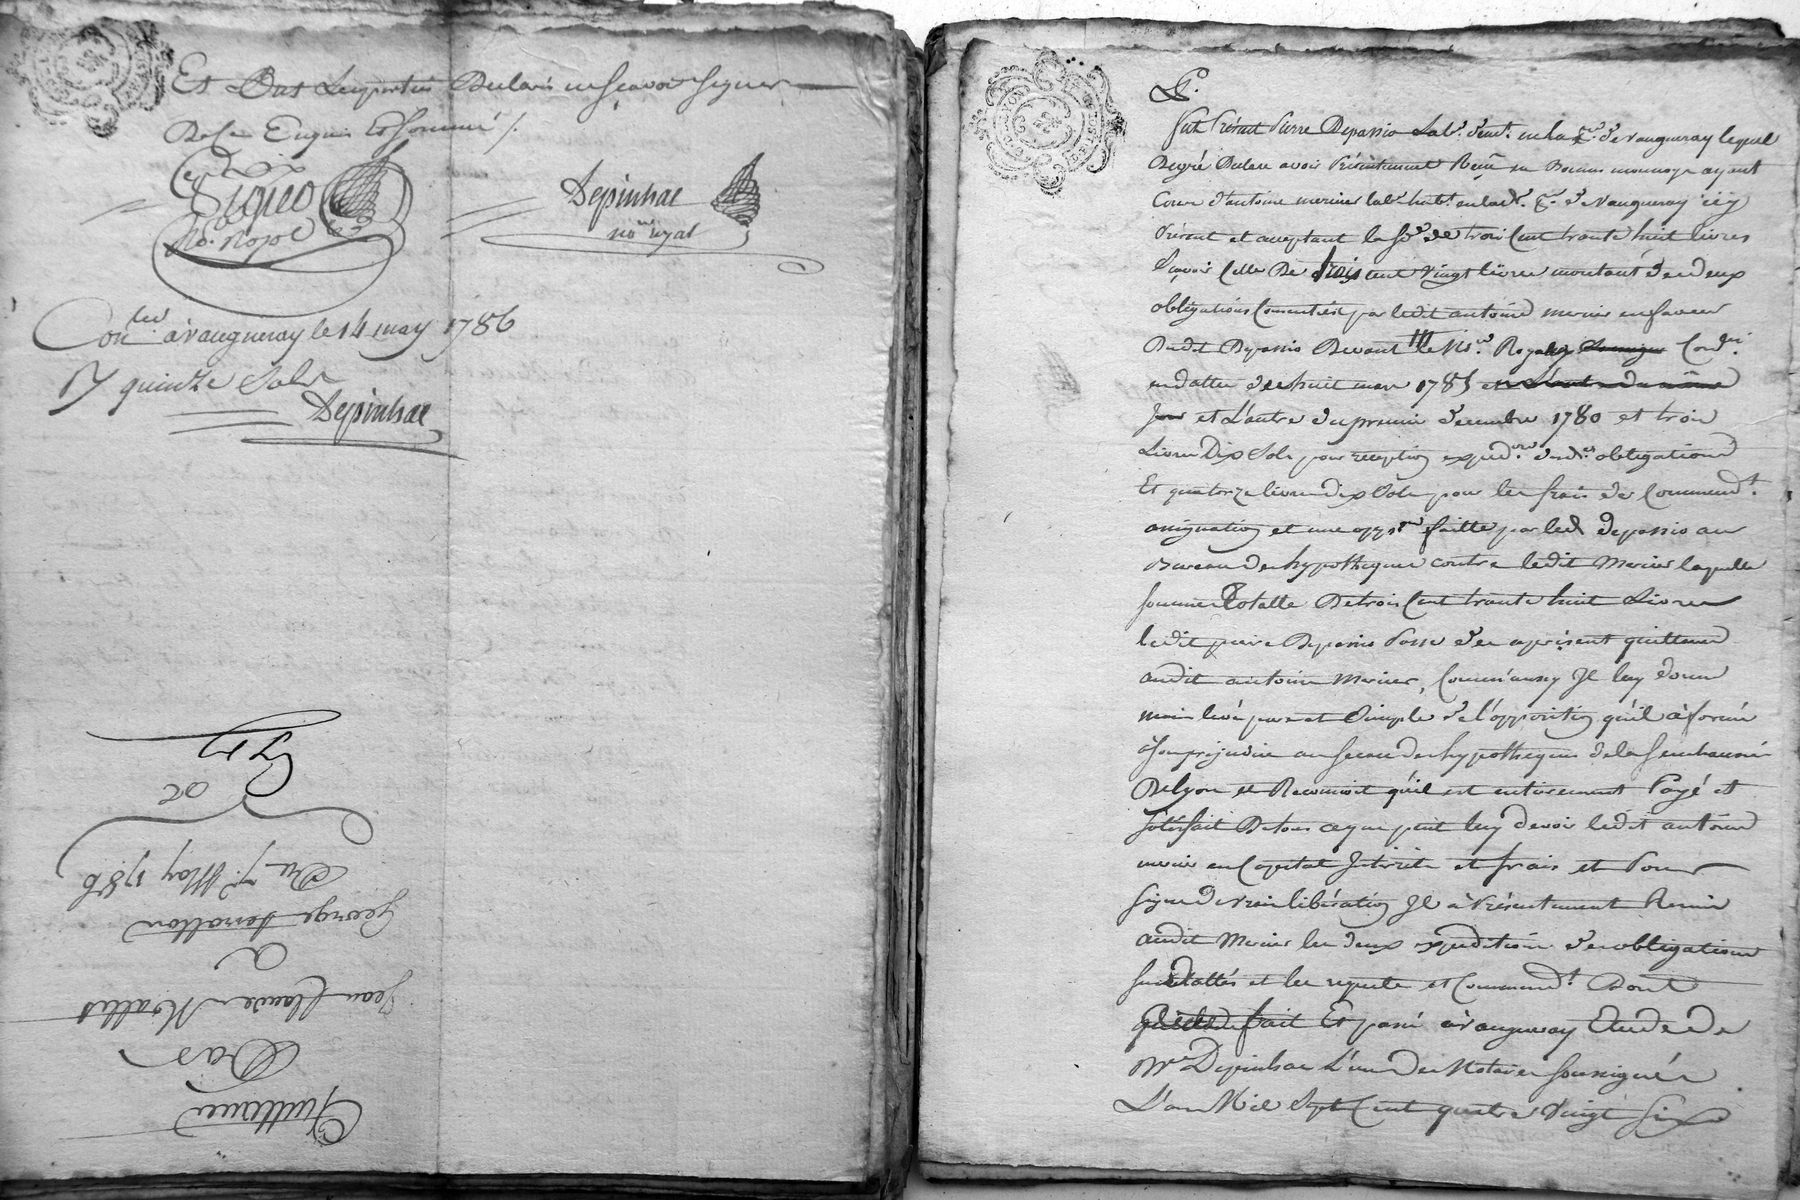 Et Pas Lesparties Declaré ne Sçavoir Signer
De ce Enquis Et Sommé /.
No. Royal
Depinhac
no.re royal
Con.lee à vaugneray le 14 may 1786
R quinze Sols
Depinhac
Quittance
Pas
Jean Claude
à
George
Du 7.e May 1786
Fut Présent Pierre Depassio Lab.r dem.t en la p.sse de vaugneray lequel
Degré Declare avoir Présentement Reçu en Bonne monnoye ayant
Cours d'antoine mercier lab.r hab.t en lad.e p.sse de vaugneray icy
Présent et acceptant la S.e de trois Cent trente huit livres
Sçavoir Celle De trois cent vingt livres montant de deux
obligations Consenties par ledit antoine mercier en faveur
Dudit Depassio Devant le No.re Royal Con.lee
en datte de huit mars 1785 et L'autre du même
jour et L'autre du premier decembre 1780 et trois
Livres Dix Sols pour reception exped.on desd.es obligations
Et quatorze livres dix Sols pour les frais de Commend.t
assignation et une opp.on faitte par led. depassio au
Bureau des hypotheques contre ledit Mercier laquelle
somme totalle De trois Cent trente huit Livres
ledit pierre Depassio Passe des apresent quittance
audit antoine Mercier, Comm'aussy Il luy donne
main levé pure et Simple de l'opposition qu'il à formé
à son prejudice au Sceau des hypotheques de la Senechaussé
De lyon et Reconnoit qu'il est entierement Payé et
Satisfait De tous ce que peut luy devoir ledit antoine
mercier en Capital Interets et frais et Pour
Signe de vraie libération Il à Présentement Remis
audit Mercier les deux expeditions des obligations
Susdattés et les requete et Commend.t Dont
fait Et passé à vaugneray Etude de
M.e Depinhac L'un des Notaires Soussignés
L'an Mil Sept Cent quatre Vingt Six